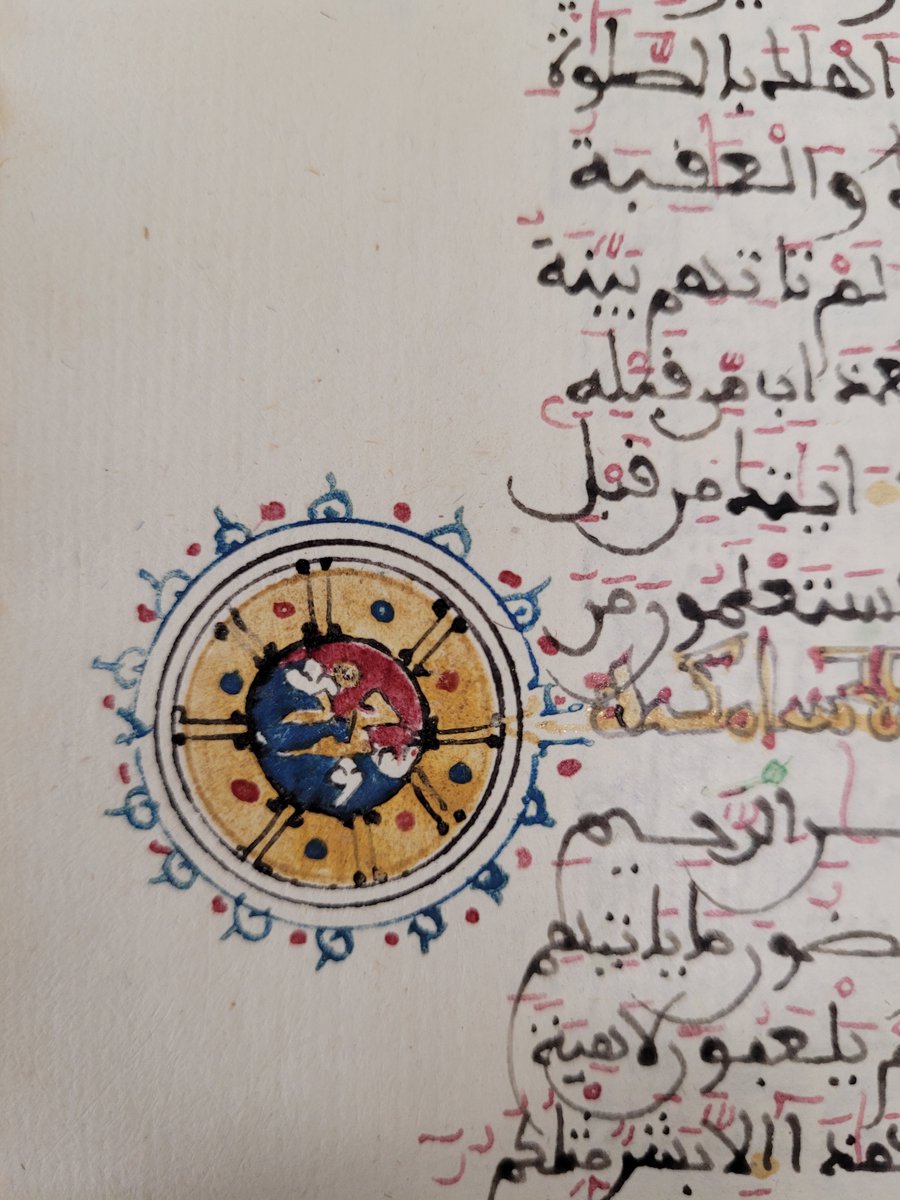 اهلك بالصلوة
والعقبة
لم تاتهم بينة
اب من قبله
ايتك من قبل
ستعلمون من
الرحيم
ضون ما ياتيهم
يلعبون لاهية
هذا الا بشر مثلكم